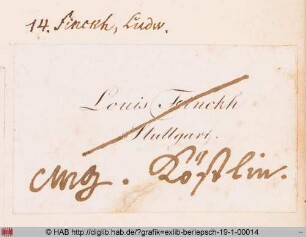 14. Finckh, Ludw.
Louis Finckh
Stuttgart.
Köstlin.
© HAB http://diglib.hab.de/?grafik=exlib-berlepsch-19-1-00014